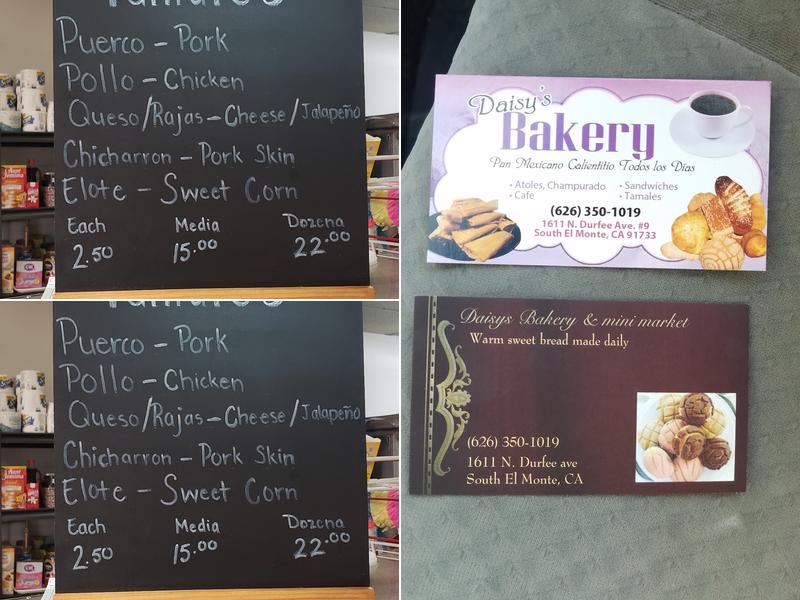 Tamales
Puerco - Pork
Pollo - Chicken
Queso/Rajas - Cheese/Jalapeño
Chicharron - Pork Skin
Elote - Sweet Corn
Each Media Dozena
2.50 15.00 22.00
Puerco - Pork
Pollo - Chicken
Queso/Rajas - Cheese/Jalapeño
Chicharron - Pork Skin
Elote - Sweet Corn
Each Media Dozena
2.50 15.00 22.00
Daisy's
Bakery
Pan Mexicano Calientitio Todos los Dias
• Atoles, Champurado • Sandwiches
• Cafe • Tamales
(626) 350-1019
1611 N. Durfee Ave. #9
South El Monte, CA 91733
Daisys Bakery & mini market
Warm sweet bread made daily
(626) 350-1019
1611 N. Durfee ave
South El Monte, CA